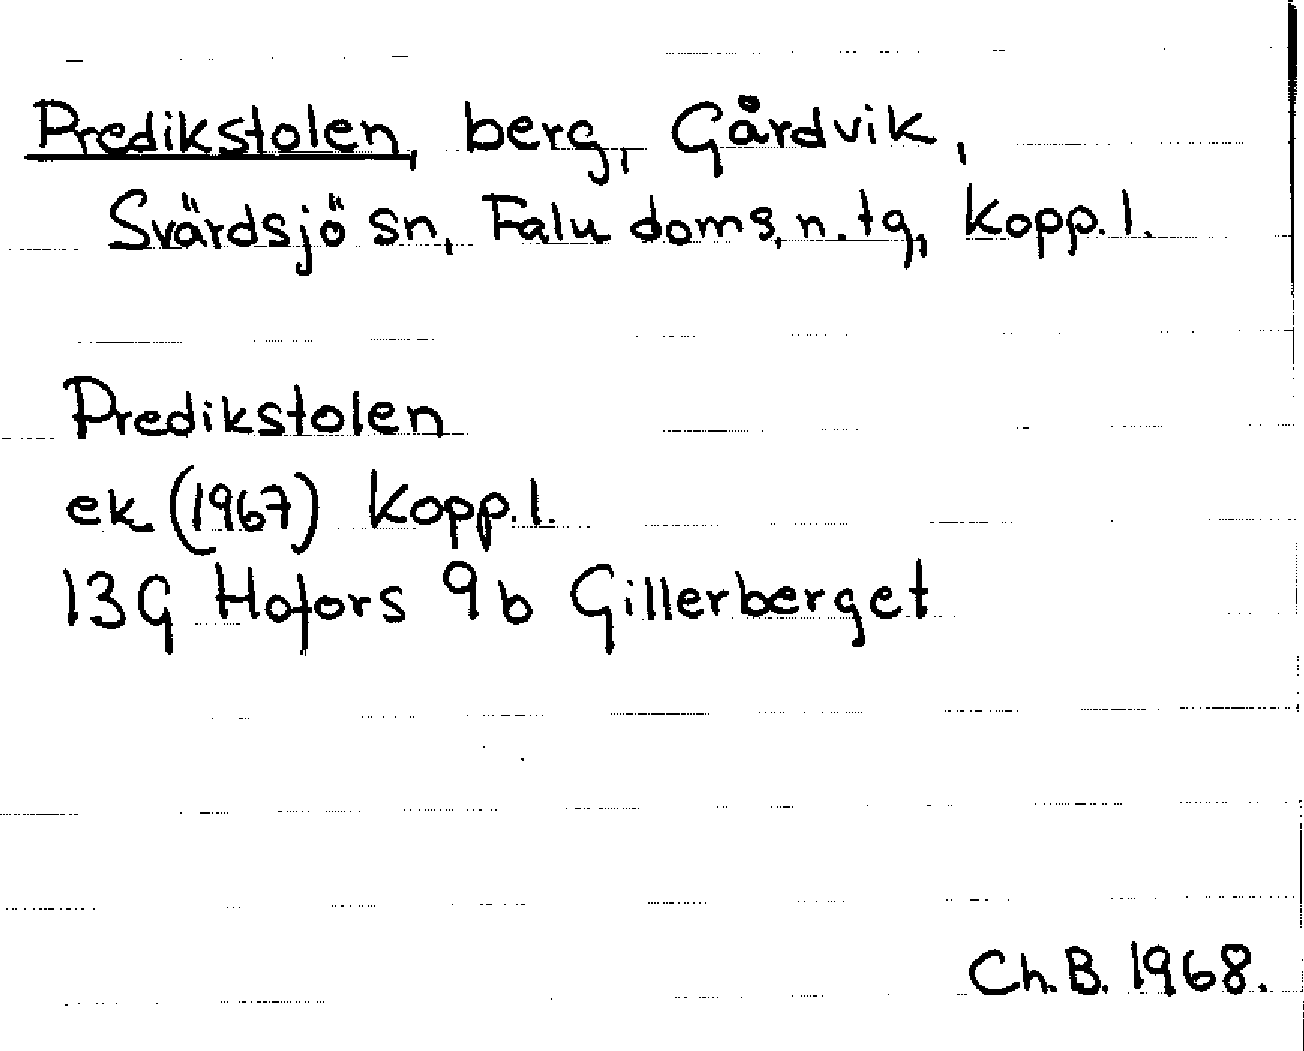 Predikstolen, berg, Gårdvik,
Svärdsjö sn, Falu doms.n.tg, Kopp.l.
Predikstolen
ek (1967) Kopp.l.
13G Hofors 9b Gillerberget
Ch.B. 1968.